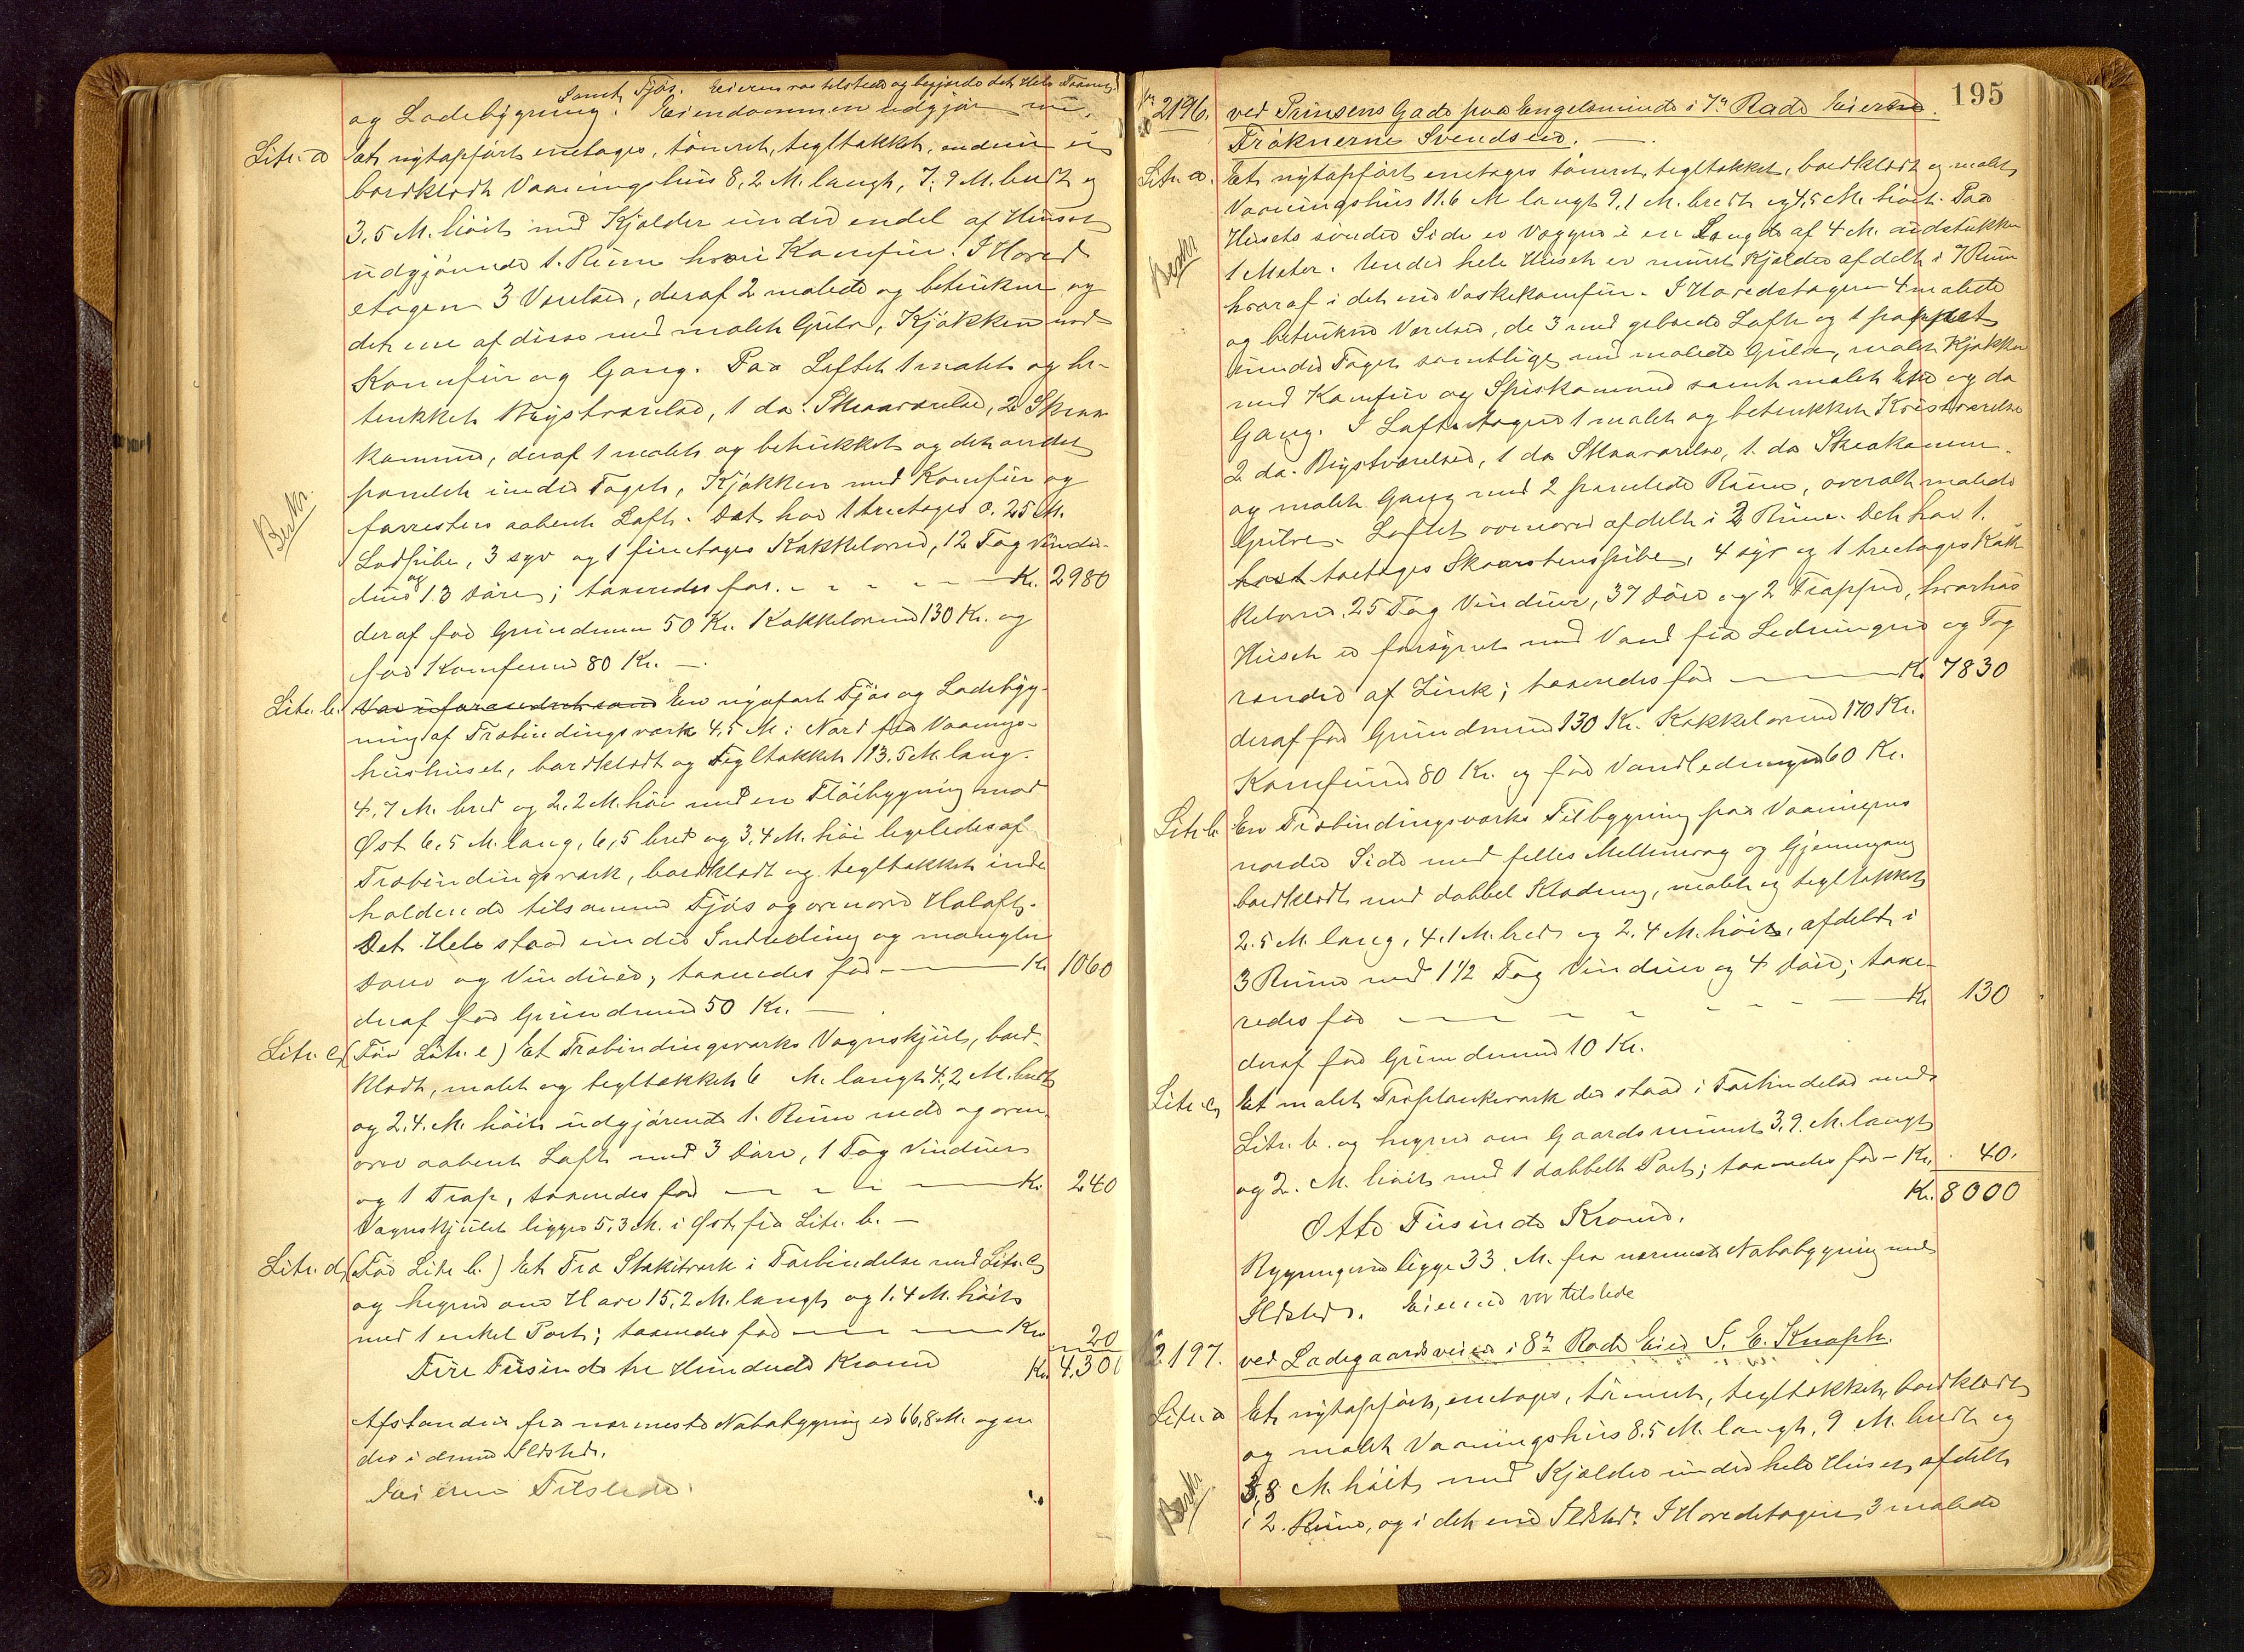 samt Fjøs. Eieren var tilstede og begjærde det Hele Taxeret.
og Ladebygning. Eiendommen udgjør nu.
Litr. a Et nytopført enetages, tømret, tegltakket, endnu ei
bordklædt Vaaningshus 8,2 M. langt, 7,9 M. bredt og
3,5 M. høit med Kjælder under endel af Huset
udgjørende 1. Rum hvori Komfur. I Hoved
etagen 3 Værelser, deraf 2 malede og betrukne og
det ene af disse med malet Gulv, Kjøkken med
Komfur og Gang. Paa Loftet 1 malet og be-
trukket Kvistværelse, 1 do. Skraaværelse, 2 Skraa
kammer, deraf 1 malet og betrukket og det andet
panelet under Taget, Kjøkken med Komfur og
Beskr.
forresten aabent Loft. Det har 1 treetages 0.25 M.
Lodpibe, 3 syv og 1 firetages Kakkelovne, 12 Fag Vindu-
duer og 13 Døre; taxeredes for. - - - - - Kr. 2980
deraf for Grundmur 50 Kr. Kakkelovne 130 Kr. og
for Komfurer 80 Kr. —.
Litr. b. En nyopført Fjøs og Ladebyg-
ning af Træbindingsværk 4,5 M. i Nord fra Vaanings-
hushuset, bordklædt og Tegltakket 13.5 M. lang.
4,7 M. bred og 2.2 M. høi med en Fløibygning mod
Øst 6,5 M. lang, 6,5 bred og 3,4 M. høi ligeledes af
Træbindingsværk, bordklædt og tegltakket inde
holdende tilsammen Fjøs og ovenover Høloft.
Det Hele staar under Indredning og mangler
Døre og Vinduer, taxeredes for — — Kr 1060
deraf for Grundmur 50 Kr. —
Litr. c, (Før Litr. c) Et Træbindingsværks Vognskjul, bord-
klædt, malet og tegltækket 6 M. langt 4,2 M. bredt
og 2.4. M. høit udgjørende 1. Rum nede og oven
over aabent Loft med 3 Døre, 1 Fag Vinduer
og 1 Trap, taxeredes for — - - — Kr. 240
Vognskjulet ligger 5,3 M. i Øst fra Litr. b. —
Litr. d, (Før Litr b.) Et Træ Stakitværk i Forbindelse med Litr. c,
og hegner om Have 15,2 M. langt og 1.4 M. høit
med 1 enkel Port; taxeredes for — — — Kr 20
Fire Tusinde tre Hundrede Kroner Kr. 4.300
Afstanden fra nærmeste Nabobygning er 66,8 M. og er
der i denne Ildsted.
Eieren Tilstede.
195
No 2196. ved Prinsens Gade paa Engelsminde i 7de Rode Eierne.
Frøknerne Svendsen. —.
Litr. a. Et nytopført enetages tømret, tegltakket, bordklædt og malet
Vaaningshus 11.6 M langt 9,1 M. bredt og 4,5 M. høit. Paa
Husets søndre Side er Væggen i en Længde af 4 M. udstukken
Beskr.
1 Meter. Under hele Huset er muret Kjælder afdelt i 7 Rum
hvoraf i det ene Vaskekomfur. I Hovedetagen 4 malede
og betrukne Værelser, de 3 med gibsede Lofte og 1 pappet
under Taget samtlige med malede Gulve, malet Kjøkken
med Komfur og Spiskammer samt malet Entre og do
Gang. I Loftsetagen 1 malet og betrukket Kvistværelse
2 do. Kvistværelser, 1 do Skraaværelse, 1. do Skraakammer.
og malet Gang med 2 panelede Rum, overalt malede
Gulve. Loftet ovenover afdelt i 2 Rum. Det har 1.
toetages Skorstenspibe, 4 syv og 1 treetages Kak
kelovne. 25 Fag Vinduer, 37 Døre og 2 Trapper, hvorhos
Huset er forsynet med Vand fra Ledningen og Tag
render af Zink; taxeredes for — — — Kr. 7830
deraf for Grundmur 130 Kr. Kakkelovne 170 Kr.
Komfurer 80 Kr. og for Vandledningen 60 Kr.
Litr. b. En Træbindingsværks Tilbygning paa Vaaningens
nordre Side med fælles Mellemvæg og Gjennemgang
bordklædt med dobbel Klædning, malet og tegltakket
2.5 M. lang, 4.1 M. bred og 2.4 M. høit, afdelt i
3 Rum med 1 1/2 Fag Vinduer og 4 Døre; taxe-
redes for — — — - - - — Kr. 130
deraf for Grundmur 10 Kr.
Litr. c, Et malet Træplankeværk der staar i Forbindelse med
Litr. b. og hegner om Gaardsrummet 3,9. M. langt
og 2. M. høit med 1 dobbelt Port; taxeredes for - Kr. 40.
Kr. 8000
Otte Tusinde Kroner.
Bygningerne ligge 33. M. fra nærmeste Nabobygning med
Ildsted. Eierne var tilstede
No 2197. ved Ladegaardsveien i 8de Rode Eier S. E. Knoph.
Litr. a Et nytopført, enetages, tømret, tegltakket, bordklædt
og malet Vaaningshus 8.5 M. langt, 9 M. bredt og
3,8 M. høit med Kjælder under hele Huset, afdelt
Beskr.
i 2. Rum, og i det ene Ildsted. I Hovedetagen 3 malede